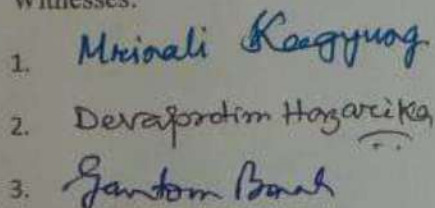 Witnesses:
1. Mrinali Kaagyung
2. Devaprotim Hazarika
3. Gautom Borah